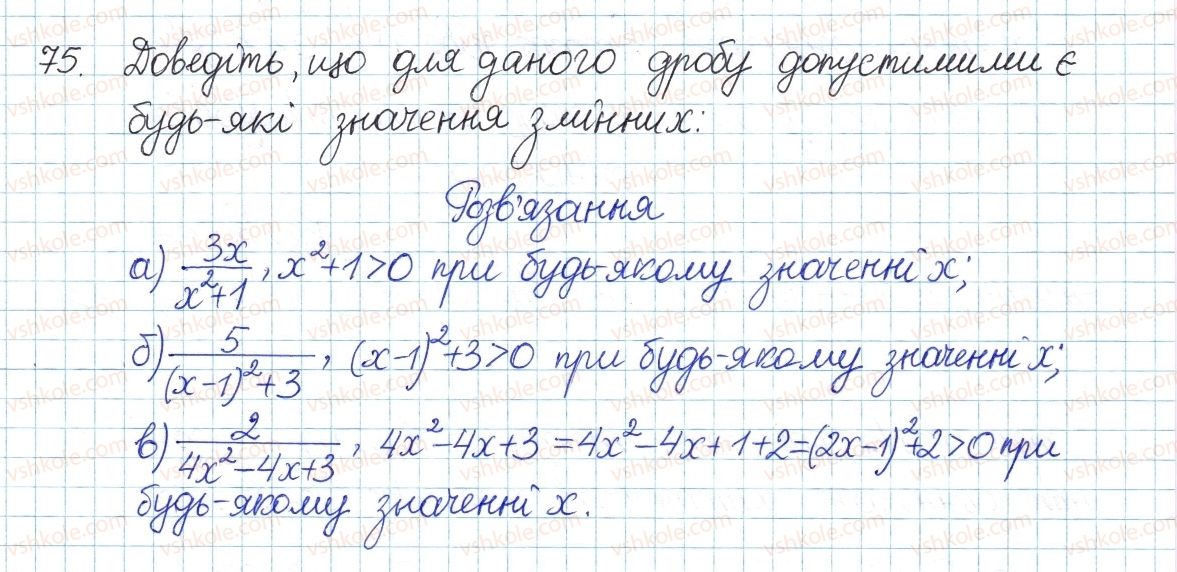 75. Доведіть, що для даного дробу допустимими є
будь-які значення змінних:
Розв'язання
а) 3x/(x²+1), x²+1>0 при будь-якому значенні x;
б) 5/((x-1)²+3), (x-1)²+3>0 при будь-якому значенні x;
в) 2/(4x²-4x+3), 4x²-4x+3=4x²-4x+1+2=(2x-1)²+2>0 при
будь-якому значенні x.